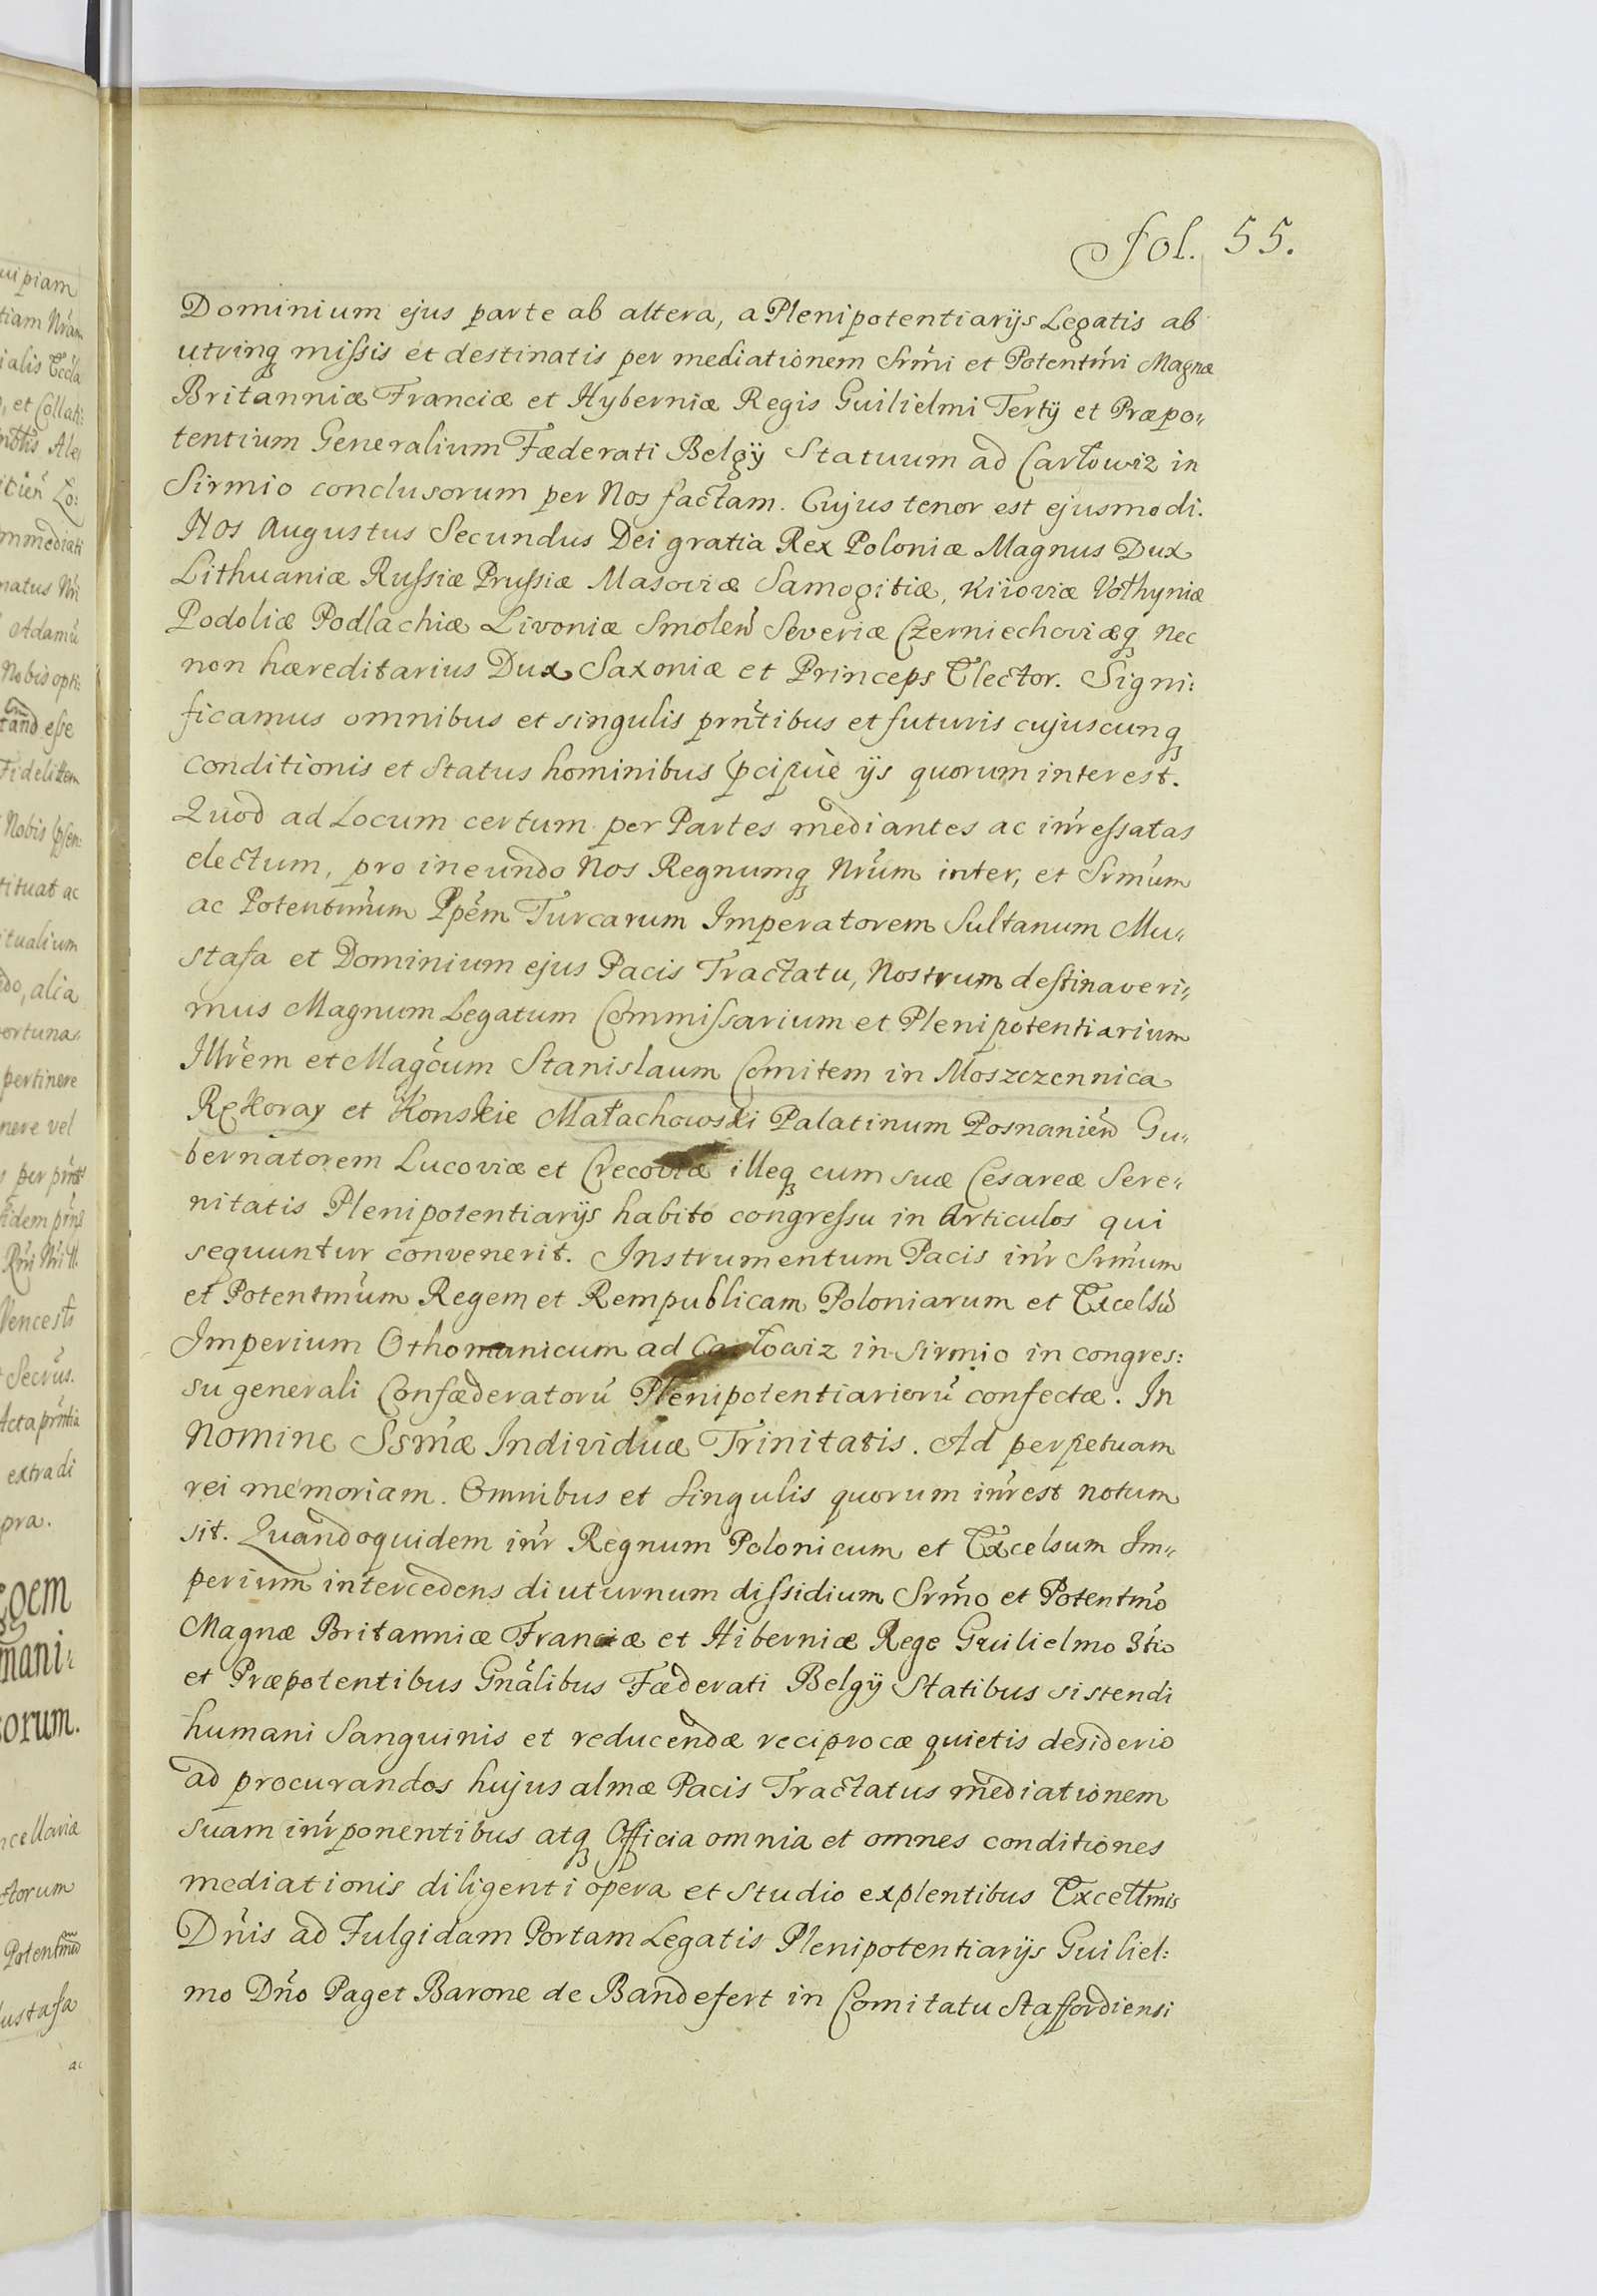 Fol. 55.
Dominium ejus parte ab altera, a Plenipotentiarijs Legatis ab
utrinq missis et destinatis per mediationem Srmi et Potentmi Magnæ
Britanniæ Franciæ et Hyberniæ Regis Guilielmi Tertij et Præpo„
tentium Generalium Fæderati Belgij Statuum ad Carłowiz in
Sirmio conclusorum per Nos factam. Cujus tenor est ejusmodi.
Nos Augustus Secundus Dei gratia Rex Poloniæ Magnus Dux
Lithuaniæ Russiæ Prussiæ Masoviæ Samogitiæ, Kiioviæ Vołhyniæ
Podoliæ Podlachiæ Livoniæ Smolen Severiæ Czerniechoviæq nec
non hæreditarius Dux Saxoniæ et Princeps Elector. Signi:
ficamus omnibus et singulis prntibus et futuris cujuscunq
conditionis et status hominibus pcipuè ijs quorum interest.
Quod ad Locum certum per Partes mediantes ac inressatas
electum, pro ineundo Nos Regnumq Nrum inter, et Srmum
ac Potentmum Ppem Turcarum Imperatorem Sultanum Mu„
stafa et Dominium ejus Pacis Tractatu, Nostrum destinaveri„
mus Magnum Legatum Commissarium et Plenipotentiarium
Illrem et Magcum Stanislaum Comitem in Moszczennica
Rekoray et Konskie Małachowski Palatinum Posnanien Gu„
bernatorem Lucoviæ et Crecoviæ illeq cum suæ Cesareæ Sere„
nitatis Plenipotentiarijs habito congressu in Articulos qui
sequuntur convenerit. Instrumentum Pacis inr Srmum
et Potentmum Regem et Rempublicam Poloniarum et Excelsu
Imperium Othomanicum ad Carłowiz in Sirmio in congres:
su generali Confæderatorũ Plenipotentiariorũ confectæ. In
Nomine Ssmæ Individuæ Trinitatis. Ad perpetuam
rei memoriam. Omnibus et singulis quorum inrest notum
sit. Quandoquidem inr Regnum Polonicum et Excelsum Im„
perium intercedens diuturnum dissidium Srmo et Potentmo
Magnæ Britanniæ Franciæ et Hiberniæ Rege Guilielmo 3tio
et Præpotentibus Gnalibus Fæderati Belgij Statibus sistendi
humani Sanguinis et reducendæ reciprocæ quietis desiderio
ad procurandos hujus almæ Pacis Tractatus mediationem
suam inrponentibus atq Officia omnia et omnes conditiones
mediationis diligenti opera et studio explentibus Excellmis
Dnis ad Fulgidam Portam Legatis Plenipotentiarijs Guiliel:
mo Dno Paget Barone de Bandefert in Comitatu Staffordiensi